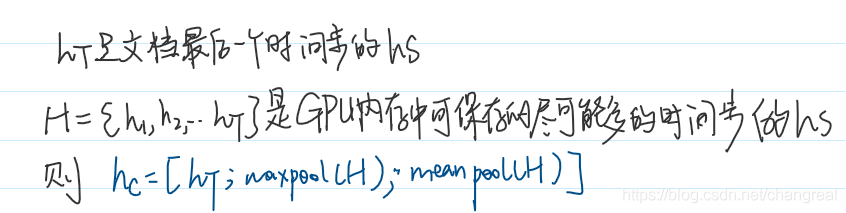 hT是文档最后一个时间步的hs
H={h1,h2,...hT}是GPU内存中可保存的尽可能多的时间步的hs
则 hc=[hT;maxpool(H);meanpool(H)]
https://blog.csdn.net/changreal